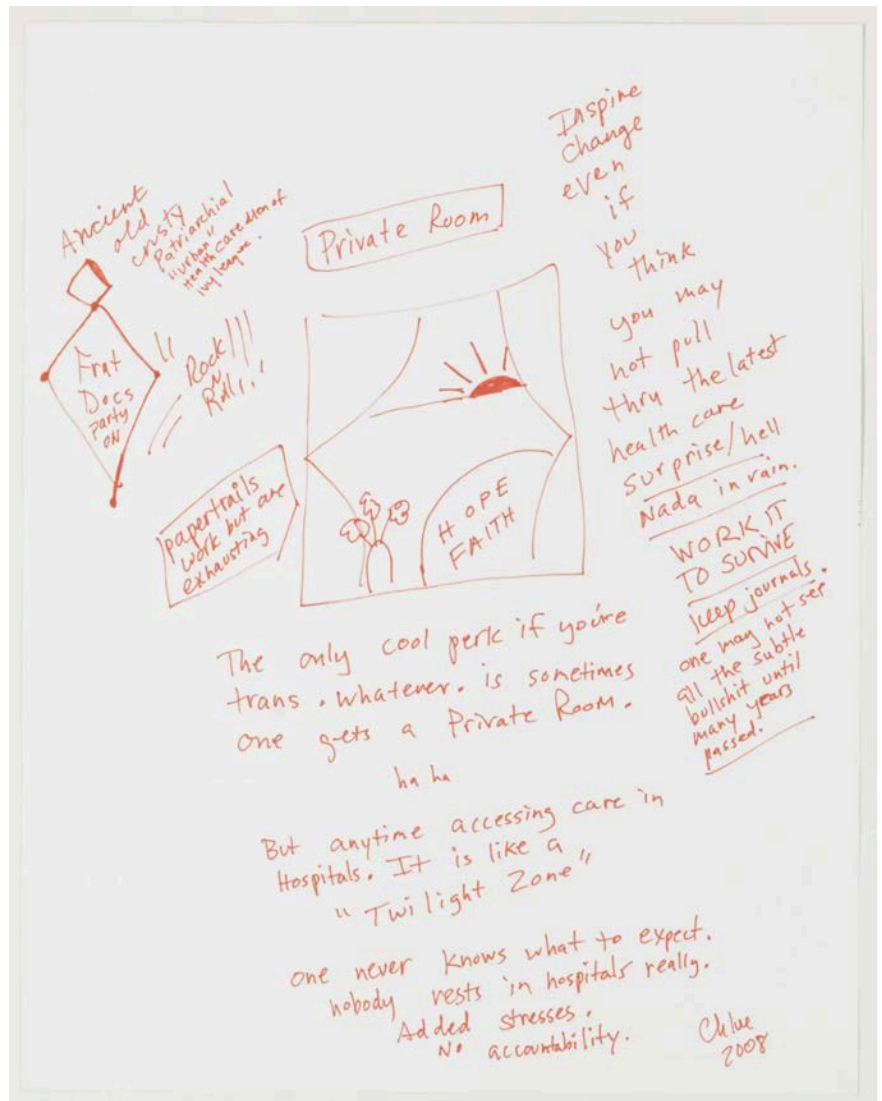 Ancient
old
crusty
Patriarchial
"urban"
Healthcare men of
Ivy league.
Frat
Docs
party
ON
"Rock!!!
N
Roll!!"
Private Room
papertrails
work but are
exhausting
HOPE
FAITH
Inspire
change
even
if
you
think
you may
not pull
thru the latest
health care
surprise/hell
Nada in vain.
WORK IT
TO SURVIVE
keep journals.
one may not see
all the subtle
bullshit until
many years
passed.
The only cool perk if you're
trans. whatever. is sometimes
one gets a Private Room.
ha ha
But anytime accessing care in
Hospitals. It is like a
"Twilight Zone"
one never knows what to expect.
nobody rests in hospitals really.
Added stresses.
No accountability.
Chloe
2008